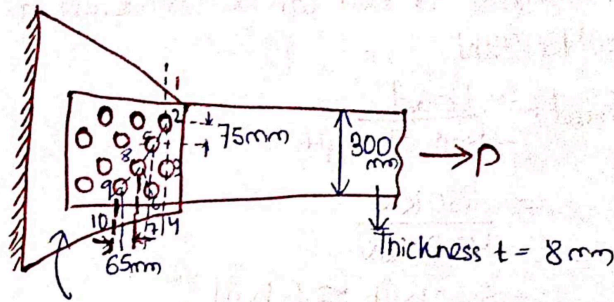 1
2
5
75mm
8
3
300
mm
→P
9
6
10
7
4
65mm
Thickness t = 8mm